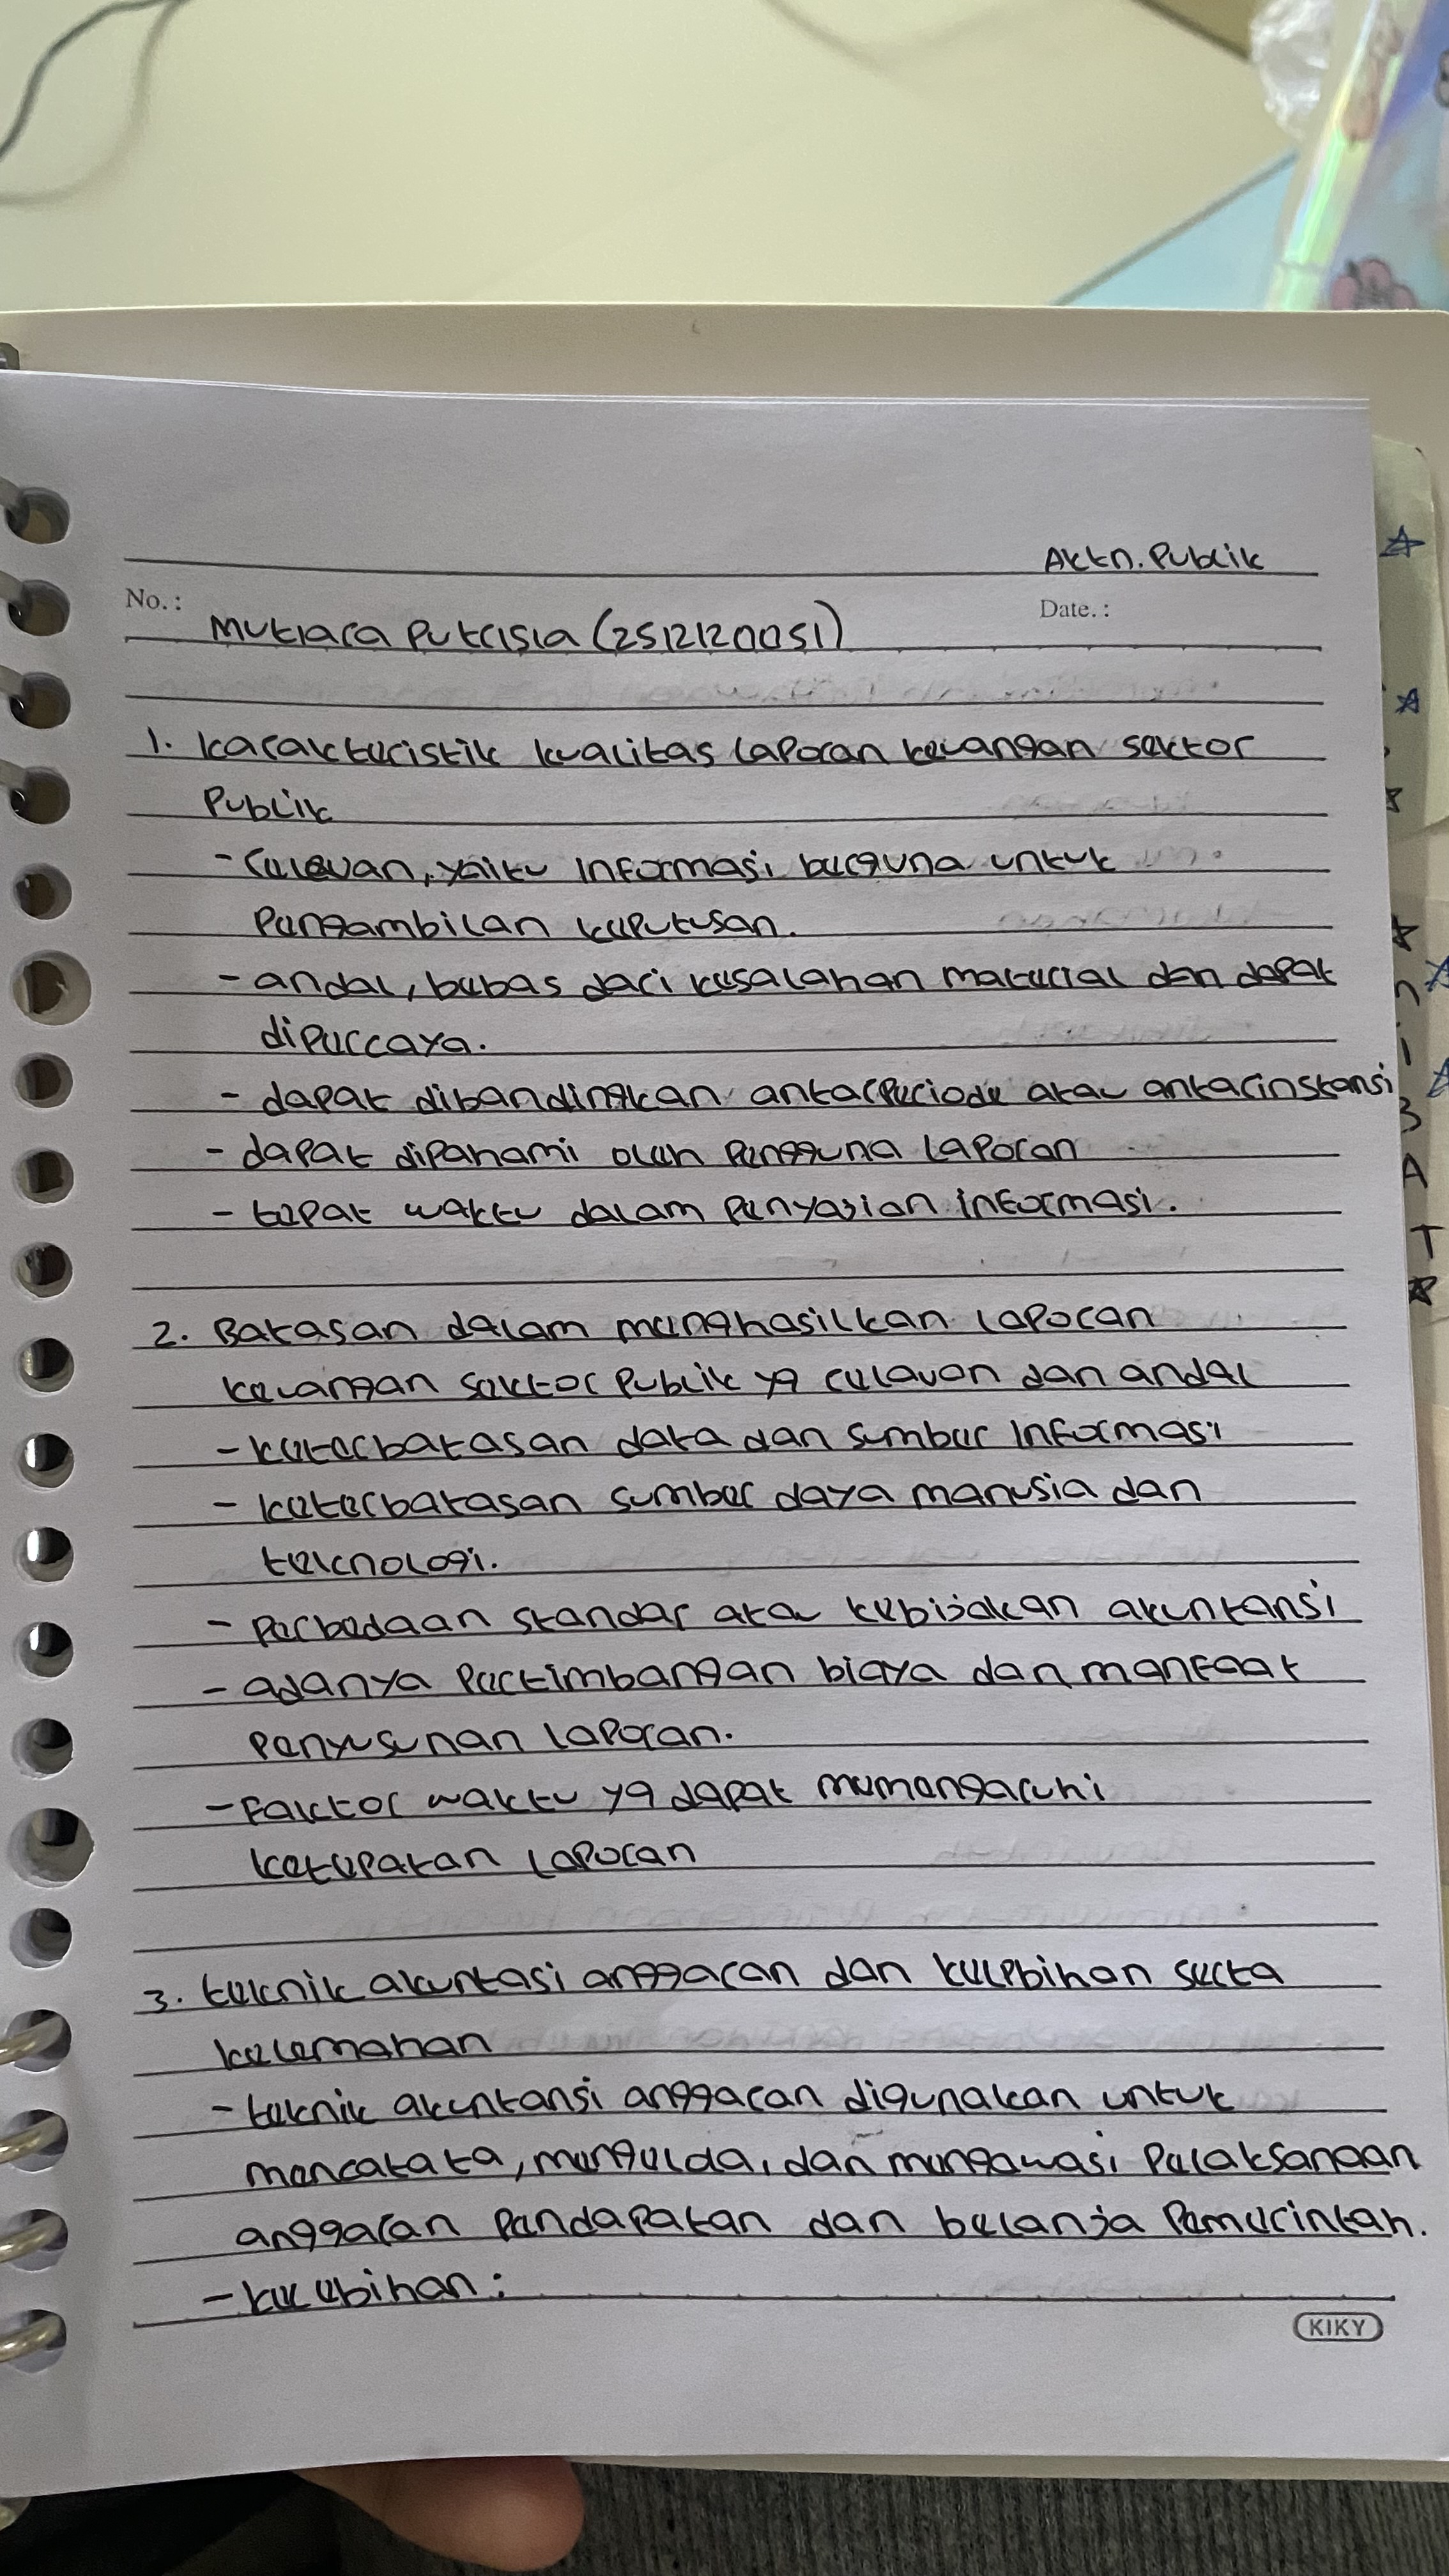 Aktn. Publik
No. :
Date. :
Mutiara Putrisia (2512120051)
1. karakteristik kualitas laporan keuangan sektor
Publik
- relevan, yaitu informasi berguna untuk
Pengambilan keputusan.
- andal, bebas dari kesalahan material dan dapat
dipercaya.
- dapat dibandingkan antarperiode atau antarinstansi
- dapat dipahami oleh Pengguna laporan
- tepat waktu dalam penyajian informasi.
2. Batasan dalam menghasilkan laporan
keuangan sektor Publik yg relavan dan andal
- keterbatasan data dan sumber informasi
- keterbatasan sumber daya manusia dan
teknologi.
- perbedaan standar atau kebijakan akuntansi
- adanya Pertimbangan biaya dan manfaat
penyusunan laporan.
- Faktor waktu yg dapat memengaruhi
ketepatan laporan
3. teknik akuntasi anggaran dan kelebihan serta
kelemahan
- teknik akuntansi anggaran digunakan untuk
mencatata, mengelola, dan mengawasi Pelaksanaan
anggaran Pendapatan dan belanja Pemerintah.
- kelebihan :
KIKY